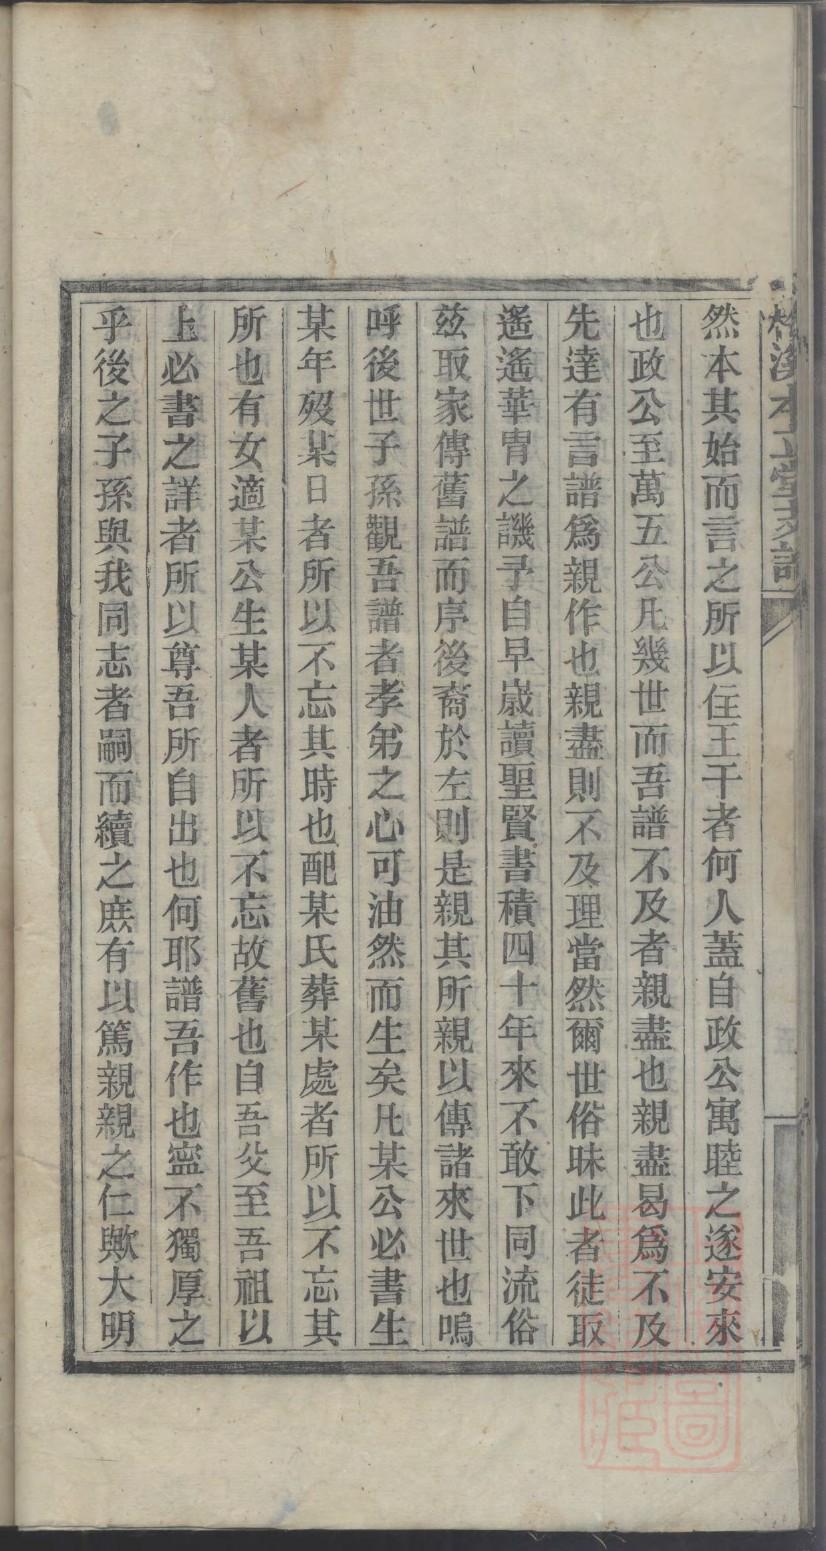 然本其始而言之所以住王干者何人蓋自政公寓睦之遂安來
也政公至萬五公凡幾世而吾譜不及者親盡也親盡曷爲不及
先達有言譜爲親作也親盡則不及理當然爾世俗昧此者徒取
遙遙華胄之譏予自早歲讀聖賢書積四十年來不敢下同流俗
兹取家傳舊譜而序後裔於左則是親其所親以傳諸來世也嗚
呼後世子孫觀吾譜者孝弟之心可油然而生矣凡某公必書生
某年歿某日者所以不忘其時也配某氏葬某處者所以不忘其
所也有女適某公生某人者所以不忘故舊也自吾父至吾祖以
上必書之詳者所以尊吾所自出也何耶譜吾作也寧不獨厚之
乎後之子孫與我同志者嗣而續之庶有以篤親親之仁歟大明